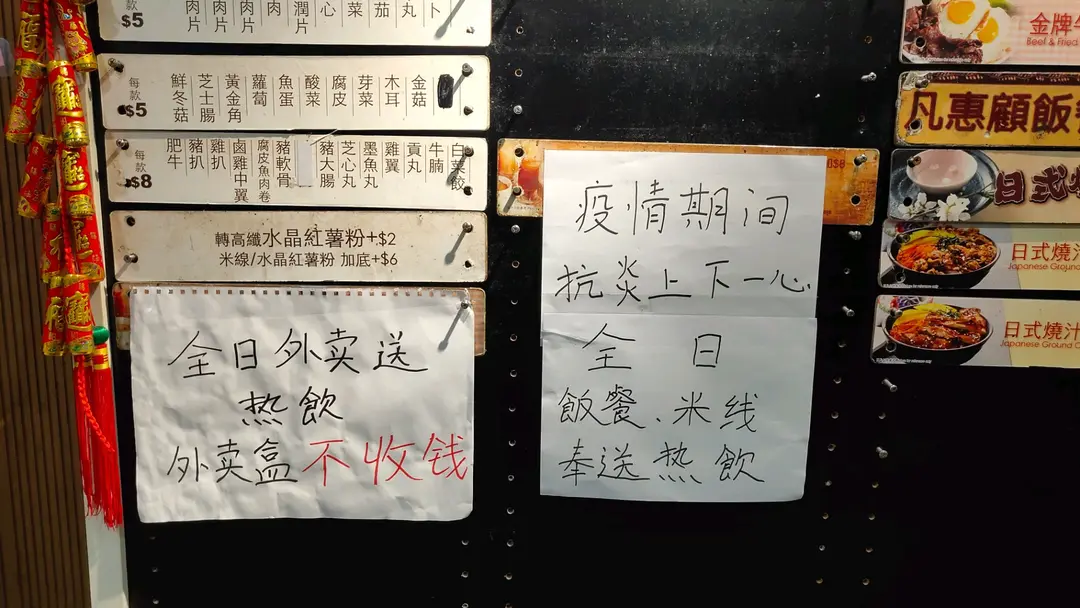 款 $5
肉片 肉片 肉片 肉 潤片 心 菜 茄 丸 卜
每款 $5
鮮冬菇 芝士腸 黃金角 蘿蔔 魚蛋 酸菜 腐皮 芽菜 木耳 金菇
每款 $8
肥牛 豬扒 雞扒 鹵雞中翼 腐皮魚肉卷 豬軟骨 豬大腸 芝心丸 墨魚丸 雞翼 貢丸 牛腩 白菜餃
轉高纖水晶紅薯粉+$2
米線/水晶紅薯粉 加底+$6
全日外卖送
热飲
外卖盒不收钱
疫情期间
抗炎上下一心
全日
飯餐、米线
奉送热飲
金牌牛
Beef & Fried
凡惠顧飯
日式
日式燒汁
Japanese Ground
日式燒汁
Japanese Ground C